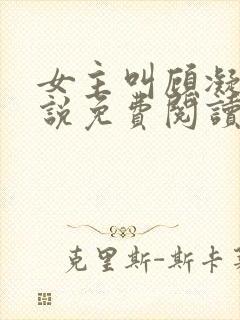 女主叫顾凝
說免費閱讀
克里斯-斯卡